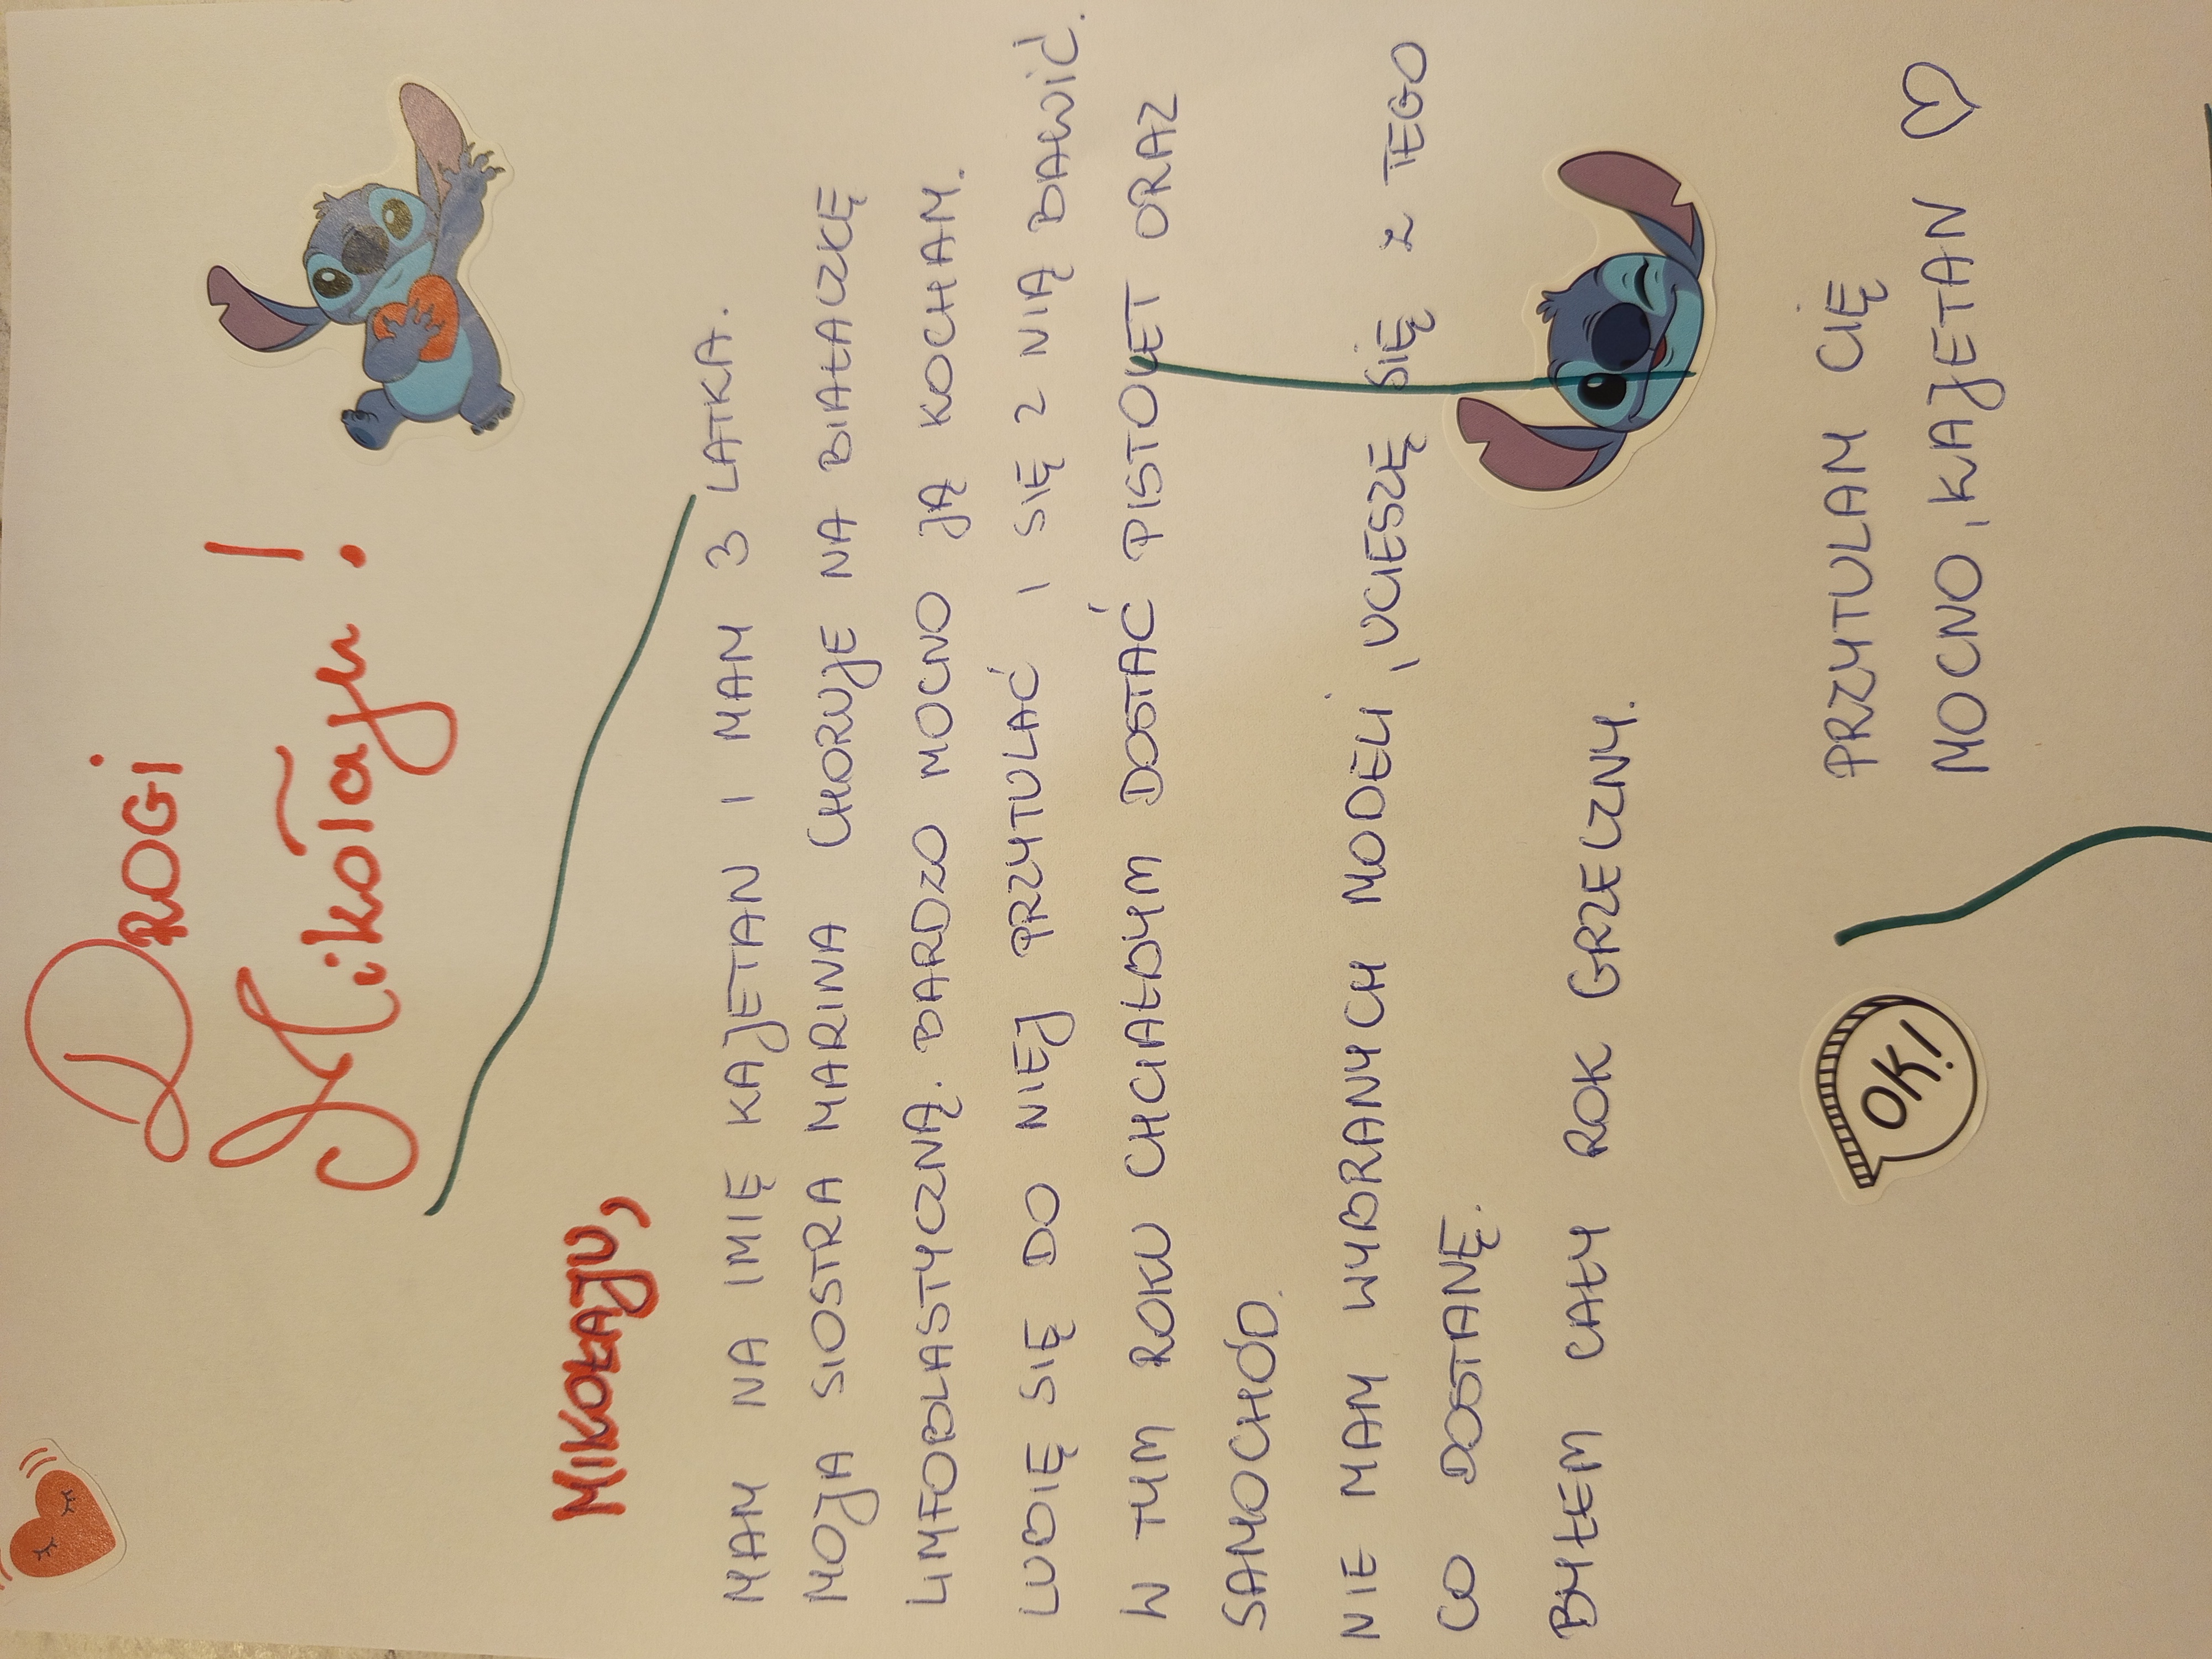 DROGI
Mikołaju!
MIKOŁAJU,
MAM NA IMIĘ KAJETAN I MAM 3 LATKA.
MOJA SIOSTRA MARINA CHORUJE NA BIAŁACZKĘ
LIMFOBLASTYCZNĄ. BARDZO MOCNO JĄ KOCHAM.
LUBIĘ SIĘ DO NIEJ PRZYTULAĆ I SIĘ Z NIĄ BAWIĆ.
W TYM ROKU CHCIAŁBYM DOSTAĆ PISTOLET ORAZ
SAMOCHÓD.
NIE MAM WYBRANYCH MODELI, UCIESZĘ SIĘ Z TEGO
CO DOSTANĘ.
BYŁEM CAŁY ROK GRZECZNY.
OK!
PRZYTULAM CIĘ
MOCNO, KAJETAN ♡